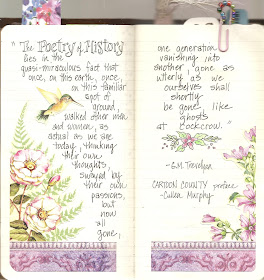 "The Poetry of History
lies in the
quasi-miraculous fact that
once, on this earth, once,
on this familiar
spot of
ground,
walked other men
and women, as
actual as we are
today, thinking
their own
thoughts,
swayed by
their own
passions,
but
now
all
gone,
one generation
vanishing into
another, gone as
utterly as we
ourselves shall
shortly
be gone, like
ghosts
at
cockcrow."
-G.M. Trevelyan
CARTOON COUNTY preface
-Cullen Murphy